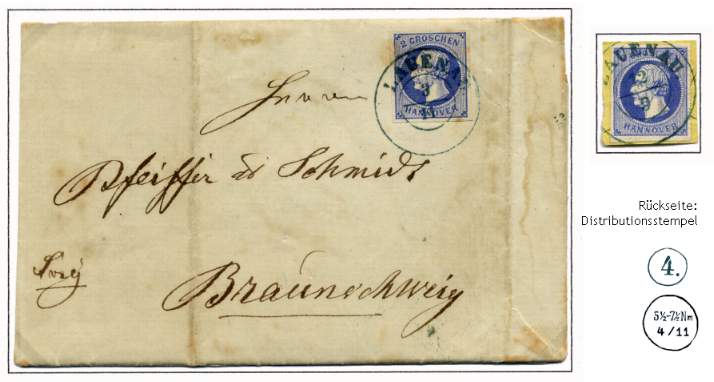 2 GROSCHEN
HANNOVER
LAUENAU
Herren
Pfeiffer & Schmidt
Braunschweig
LAUENAU
HANNOVER
Rückseite:
Distributionsstempel
4.
5½-7½Nm
4/11